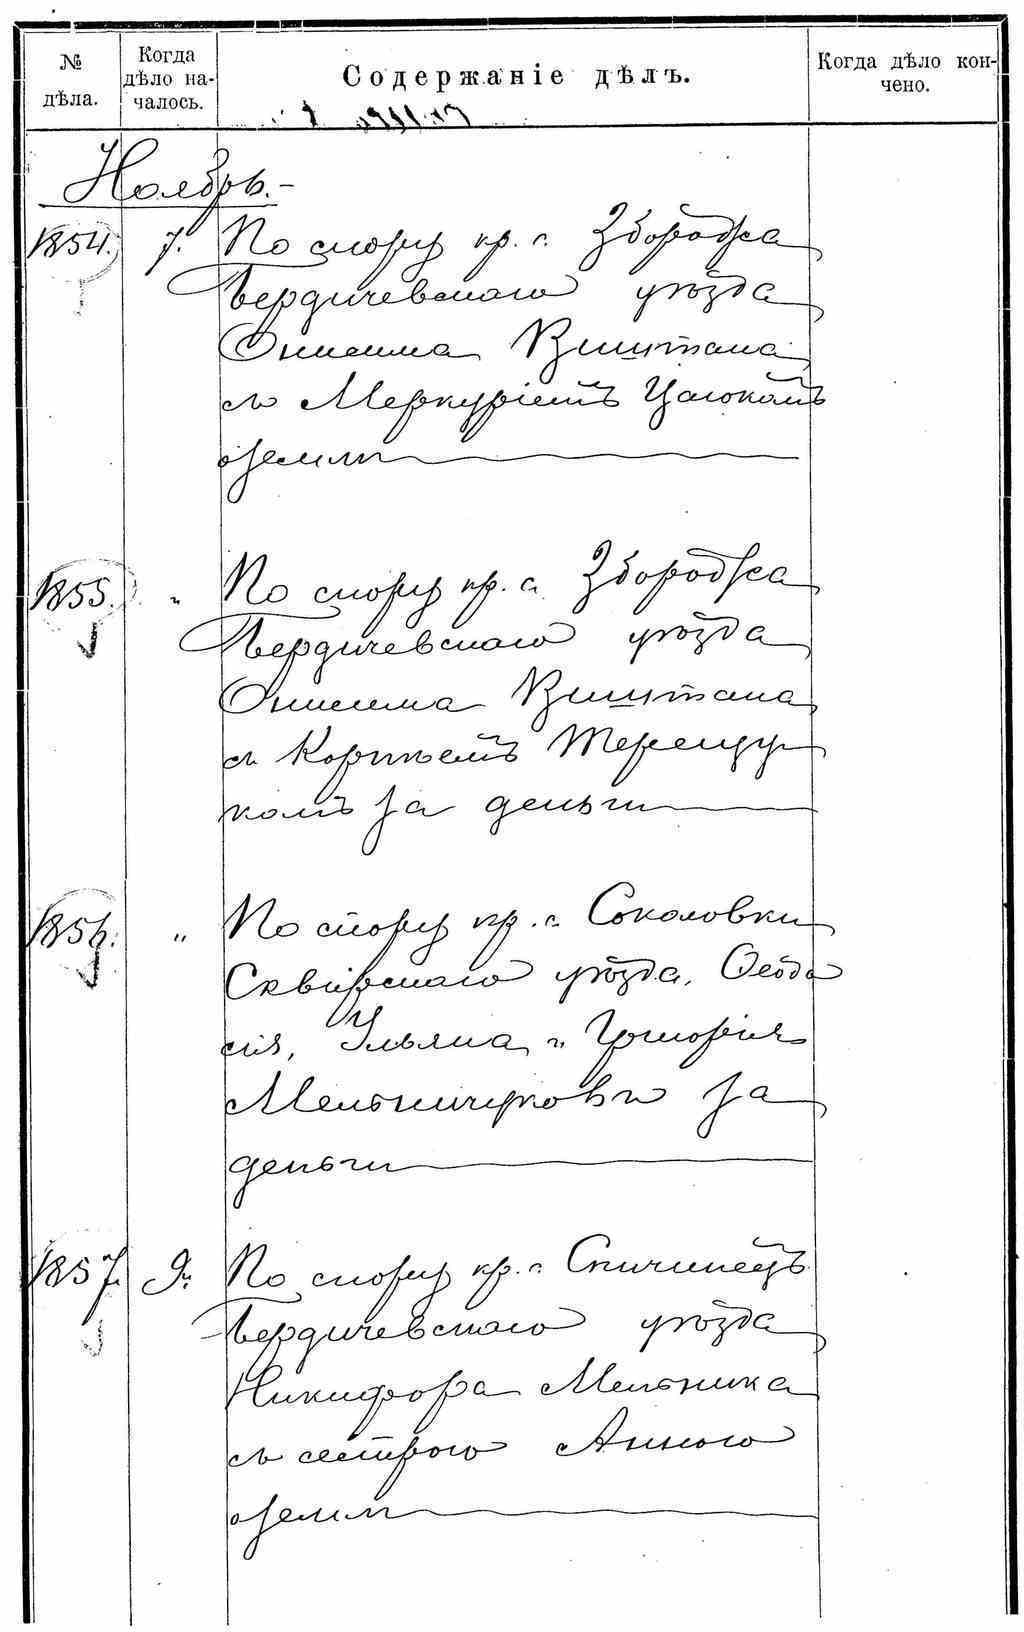 № дѣла.
Когда дѣло на-
чалось.
Содержаніе дѣлъ.
Когда дѣло кон-
чено.
Ноябрь.-
1854. 7. По спору кр. с. Збородка
Бердичевскаго уѣзда
Онисима Виштана
съ Меркуріемъ Цаюкомъ
о землѣ
1855. " По спору кр. с. Збородка
Бердичевскаго уѣзда
Онисима Виштана
съ Корнѣемъ Терещу-
комъ за деньги
1856. " По спору кр. с. Соколовки
Сквирскаго уѣзда, Ѳеодо
сія, Ульяна и Григорія
Мельничуковъ за
деньги
1857. 9. По спору кр. с. Спичинецъ
Бердичевскаго уѣзда
Никифора Мельника
съ сестрою Анною
о землѣ